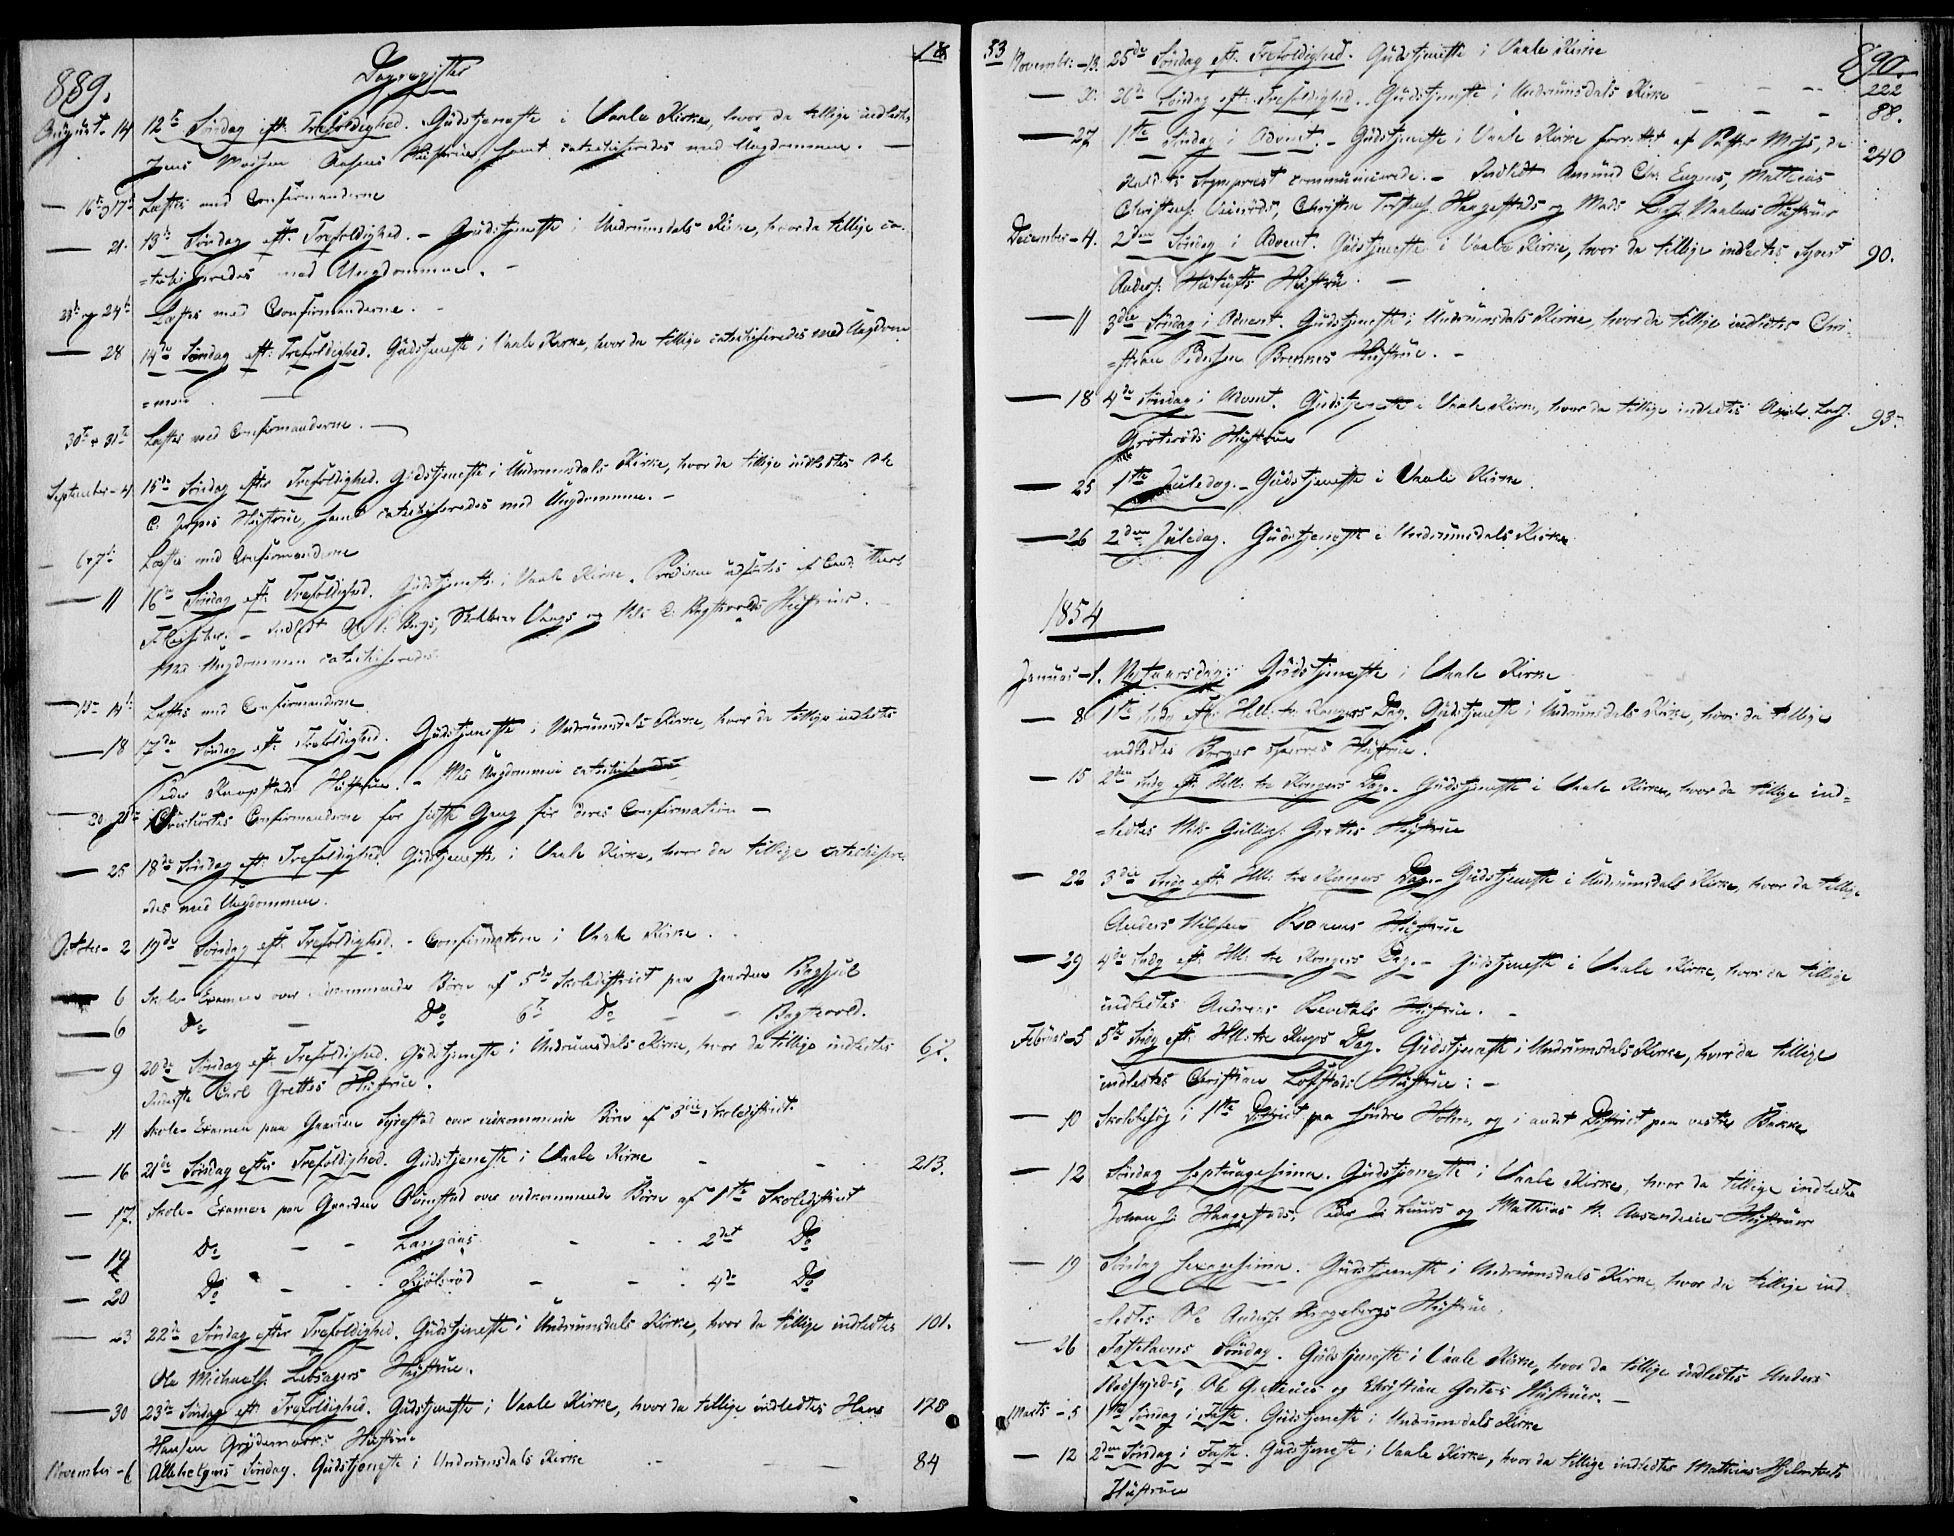 889.
Dagregister
18
August - 14 12te Søndag eft. Trefoldighed. Gudstjeneste i Vaale Kirke, hvor da tillige indledtes
Jens Hustrue, samt catechiseredes med Ungdommen. —
— 16de og 17de Læstes med Confirmanderne
— 21. 13de Søndag eft. Trefoldighed. - Gudstjeneste i Undrumsdals Kirke, hvor da tillige ca-
=techiseredes med Ungdommen. -
23de og 24de Læstes med Confirmanderne. -
— 28 14de Søndag eft. Trefoldighed. Gudstjeneste i Vaale Kirke, hvor da tillige catechiseredes med Ungdom
=men.
30te & 31te Læstes med Confirmanderne. —
September - 4 15de Søndag efter Trefoldighed. Gudstjeneste i Undrumsdals Kirke, hvor da tillige indledtes Ole
C. Hustrue, samt catechiseredes med Ungdommen. -
— 6 & 7de Læstes med Confirmanderne
— 11 16de Søndag eft. Trefoldighed. Gudstjeneste i Vaale Kirke. Prædiken udførtes af Cand. Theol.
Fleischer. - Indledt Bergs, Vangs og Nils Hustruer.
Med Ungdommen catechiseredes.
— 13 - 14de Læstes med Confirmanderne.
— 18 17de Søndag eft. Trefoldighed. Gudstjeneste i Undrumsdals Kirke, hvor da tillige indledtes
Peder Hustrue. - Med Ungdommen catechiseredes
— 20 - 21de Confirmanderne for sidste Gang før deres Confirmation —
— 25 18de Søndag eft. Trefoldighed. Gudstjeneste i Vaale Kirke, hvor da tillige catechisere-
=des med Ungdommen.
October - 2 19de Søndag eft. Trefoldighed. - Confirmation i Vaale Kirke.
— 6 Skole-Examen over vedkommende Børn af 5te Skoledistrict paa Gaarden
— 6 Do — Do 6te Do — —
— 9 20de Søndag eft. Trefoldighed. Gudstjeneste i Undrumsdals Kirke, hvor da tillige indledtes 61.
Carl Grettes Hustrue.
— 11 Skole-Examen paa Gaarden over vedkommende Børn af 3die Skoledistrict.
— 16 21de Søndag efter Trefoldighed. Gudstjeneste i Vaale Kirke — — 213.
— 17. Skole-Examen paa Gaarden over vedkommende Børn af 1ste Skoledistrict
— 19 Do — — Langaas — — 2det Do
— 20 Do — — — — 4de Do
— 23 22de Søndag efter Trefoldighed. Gudstjeneste i Undrumsdals Kirke, hvor da tillige indledtes 101.
Ole Michaels. Hustrue.
— 30 23de Søndag eft. Trefoldighed. Gudstjeneste i Vaale Kirke, hvor da tillige indledtes Hans 178
Hansen Hustrue
November - 6 Allehelgens Søndag. Gudstjeneste i Undrumsdals Kirke — — 84
53
890.
November - 13. 25de Søndag eft. Trefoldighed. Gudstjeneste i Vaale Kirke 222
— 20. 26de Søndag eft. Trefoldighed. Gudstjeneste i Undrumsdals Kirke — — 88.
— 27 1ste Søndag i Advent. - Gudstjeneste i Vaale Kirke forrettet af Pastor da 240
Sognepræst communicerede. - Indledt Amund Chr. Mathias
Christens. Christen og Mads Lars. Hustruer
December - 4. 2den Søndag i Advent. Gudstjeneste i Vaale Kirke, hvor da tillige indledtes Syvert 90.
Anders. Hustrue. —
— 11 3die Søndag i Advent. Gudstjeneste i Undrumsdals Kirke, hvor da tillige indledtes Chri-
=stian Pedersen Hustrue. -
— 18 4de Søndag i Advent. Gudstjeneste i Vaale Kirke, hvor da tillige indledtes Lars. 93
Hustrue
— 25 1ste Juledag. - Gudstjeneste i Vaale Kirke.
— 26 2den Juledag. Gudstjeneste i Undrumsdals Kirke
1854
Januar - 1. Nytaarsdag: Gudstjeneste i Vaale Kirke
— 8 1ste Sndg eft. Hell: tre Kongers Dag. Gudstjeneste i Undrumsdals Kirke, hvor da tillige
indledtes Hustrue.
— 15 2den Sndg eft. Hell: tre Kongers Dag. Gudstjeneste i Vaale Kirke, hvor da tillige ind=
=ledtes Nils Gullics. Grettes Hustrue
— 22 3die Sndg eft. Hell: tre Kongers Dag. - Gudstjeneste i Undrumsdals Kirke, hvor da tillige
Anders Nilsen Hustrue
— 29 4de Sndg eft. Hell: tre Kongers Dag. - Gudstjeneste i Vaale Kirke, hvor da tillige
indledtes Andreas Revetals Hustrue. -
Februar - 5 5te Sndg eft. Hell: tre Kongers Dag. Gudstjeneste i Undrumsdals Kirke, hvor da tillige
indledtes Christian Hustrue. -
— 10 Skolebesøg i 1ste District paa søndre Holm og i andet District paa vestre Bakke
— 12 Søndag Septuagesima. Gudstjeneste i Vaale Kirke, hvor da tillige indledtes
Johan og Mathias Hustruer
— 19 Søndag Sexagesima. Gudstjeneste i Undrumsdals Kirke, hvor da tillige ind-
=ledtes Ole Anders. Hustrue.
— 26 Fastelavns Søndag. Gudstjeneste i Vaale Kirke, hvor da tillige indledtes Anders
Ole og Christian Hustruer. -
Marts - 5 1ste Søndag i Faste. Gudstjeneste i Undrumsdals Kirke
— 12 2den Søndag i Faste. Gudstjeneste i Vaale Kirke, hvor da tillige indledtes Mathias
Hustrue